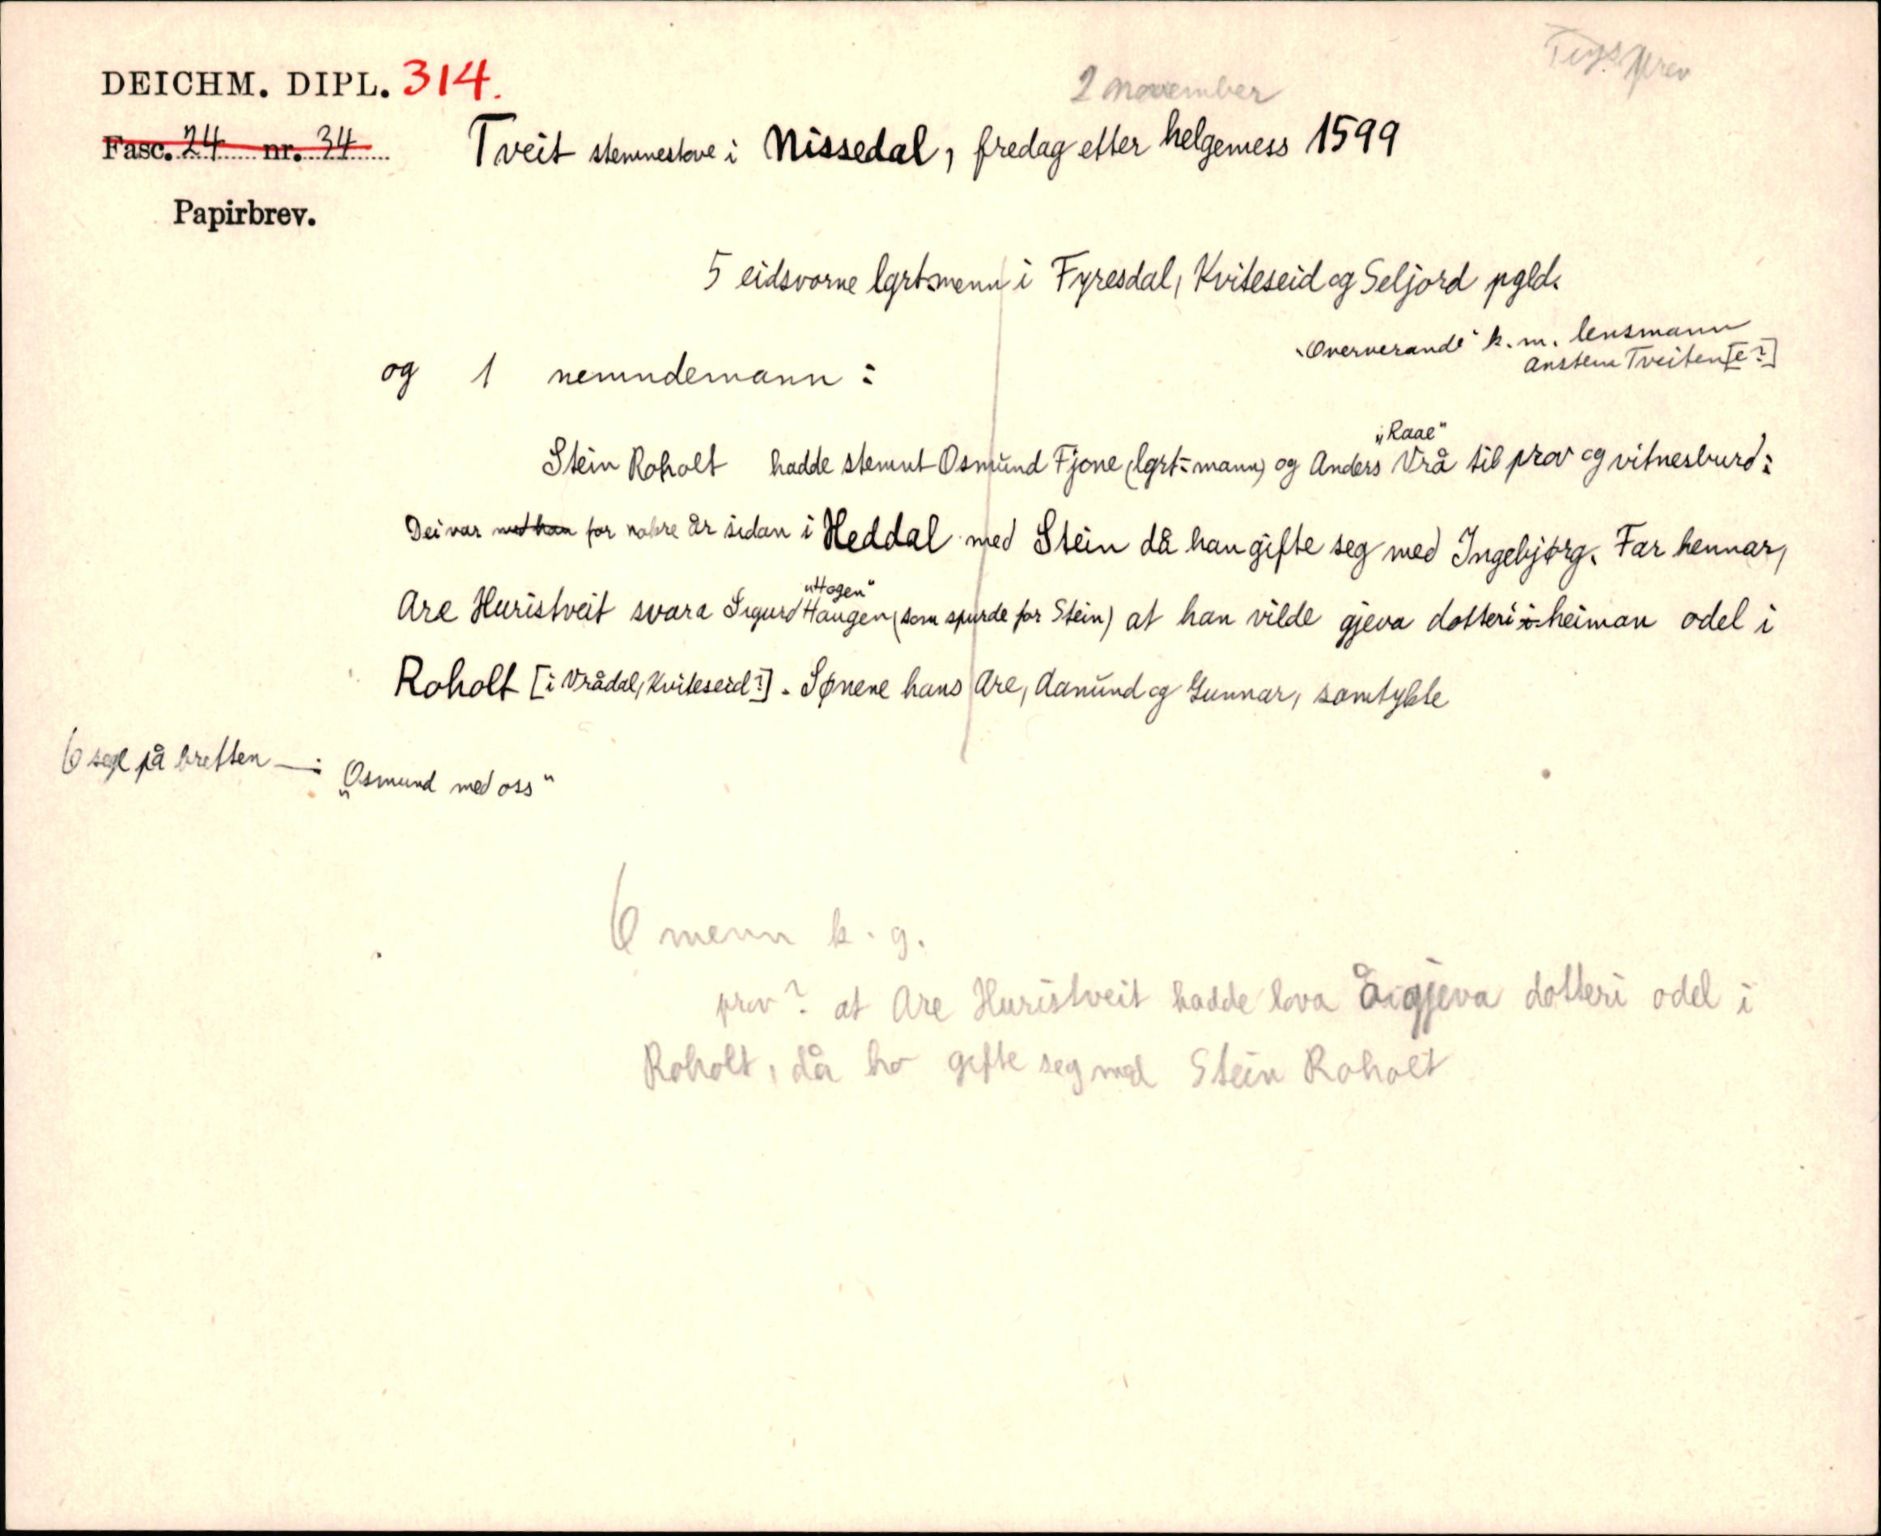 DEICHM. DIPL. 314.
2 november
Fasc. 24 nr. 34
Tveit stemnestove i Nissedal, fredag etter helgemess 1599
Papirbrev.
5 eidsvorne lgrt.menn i Fyresdal, Kviteseid og Seljord pgld.
"Oververande" k. m. lensmann
Anstein Tveiten[e?]
og 1 nemndemann :
"Raae"
Stein Roholt hadde stemnt Osmund Fjone (lgrt-mann) og Anders Vrå til prov og vitnesburd:
Dei var med han for nokre år sidan i Heddal med Stein då han gifte seg med Ingebjørg. Far hennar,
"Hogen"
Are Huristveit svara Sigurd Haugen (som spurde for Stein) at han vilde gjeva dotteri i heiman odel i
Roholt [i Vrådal, Kviteseid?]. Sønene hans Are, Aanund og Gunnar, samtykte
6 segl på bretten —: "Osmund med oss"
6 menn k. g.
prov? at Are Huristveit hadde lova å gjeva dotteri odel i
Roholt, då ho gifte seg med Stein Roholt